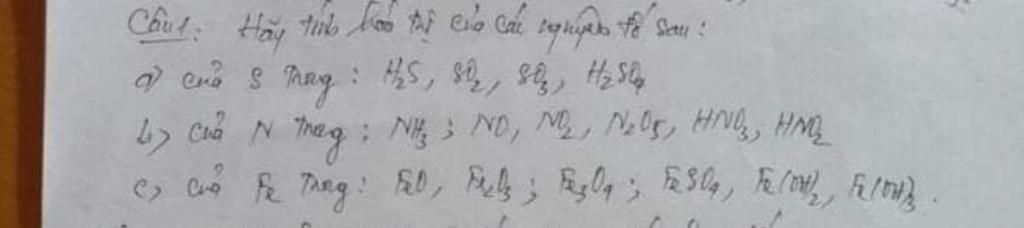 Câu 1: Hãy tính hoá trị của các nguyên tố sau:
a) của S trong: H₂S, SO₂, SO₃, H₂SO₄
b) của N trong: NH₃; NO, NO₂, N₂O₅, HNO₃, HNO₂
c) của Fe trong: FeO, Fe₂O₃; Fe₃O₄; FeSO₄, Fe(OH)₂, Fe(OH)₃.